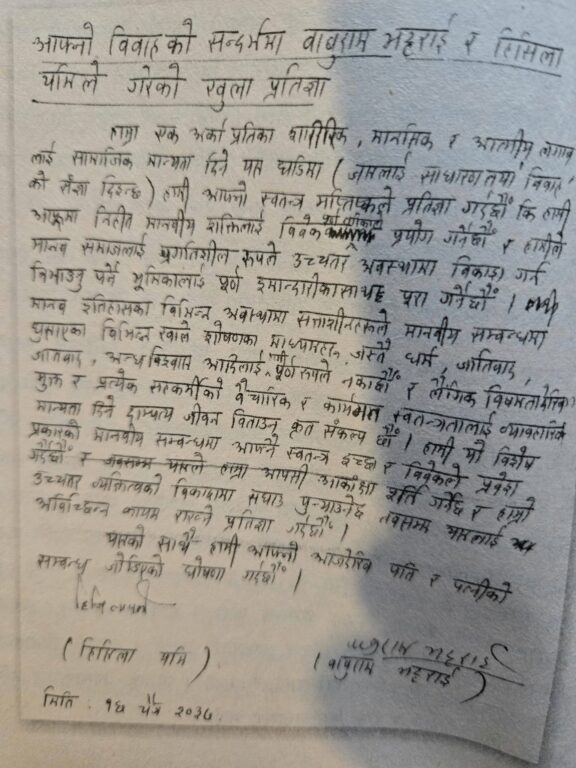 आफ्नो विवाहको सन्दर्भमा बाबुराम भट्टराई र हिसिला
यमिले गरेको खुला प्रतिज्ञा
हाम्रा एक अर्का प्रतिका शारीरिक, मानसिक र आत्मीय लगाव
लाई सामाजिक मान्यता दिने यस घडिमा (जसलाई साधारणतया 'विवाह'
को संज्ञा दिइन्छ) हामी आफ्नो स्वतन्त्र मस्तिष्कले प्रतिज्ञा गर्दछौं कि हामी
आफूमा निहीत मानवीय शक्तिलाई विवेक पूर्ण तरिकाले प्रयोग गर्नेछौं र हामीले
मानव समाजलाई प्रगतिशील रूपले उच्चतर अवस्थामा विकाश गर्न
निभाउनु पर्ने भूमिकालाई पूर्ण इमान्दारीकासाथ पूरा गर्नेछौं ।
मानव इतिहासका विभिन्न अवस्थामा सत्तासीनहरूले मानवीय सम्बन्धमा
घुसाएका विभिन्न खाले शोषणका माध्यमहरू, जस्तै धर्म, जातिवाद,
जातिवाद, अन्धविश्वास आदिलाई पूर्ण रूपले नकार्दछौं र लैंगिक विषमतादेखि
मुक्त र प्रत्येक सहकर्मीको वैचारिक र कार्यगत स्वतन्त्रतालाई व्यावहारिक
मान्यता दिने दाम्पत्य जीवन विताउन कृत संकल्प छौं । हामी यो विशेष
प्रकारको मानवीय सम्बन्धमा आफ्नै स्वतन्त्र इच्छा र विवेकले प्रवेश
गर्दछौं र जबसम्म यसले हाम्रा आपसी आकांक्षा शर्ति गर्नेछ र हाम्रो
उच्चतर व्यक्तित्वको विकाशमा सघाउ पुऱ्याउनेछ तबसम्म यसलाई
अविच्छिन्न कायम राख्ने प्रतिज्ञा गर्दछौं ।
यसको साथै हामी आफ्नो आजदेखि पति र पत्नीको
सम्बन्ध जोडिएको घोषणा गर्दछौं ।
(हिसिला यमि)
बाबुराम भट्टराई
(बाबुराम भट्टराई)
मिति : १६ चैत्र २०३७